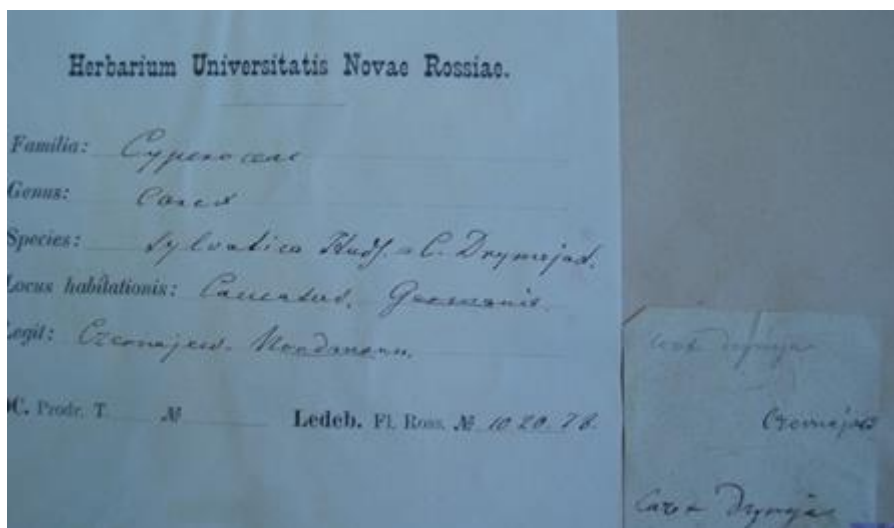 Herbarium Universitatis Novae Rossiae.
Familia: Cyperaceae
Genus: Carex
Species: sylvatica Huds. = C. Drymeja
Locus habitationis: Caucasus. Germania.
Legit: Czernajew. Nordmann.
C. Prodr. T. № Ledeb. Fl. Ross. № 10 20. 78.
Carex Drymeja
Czernajew
Carex Drymeja